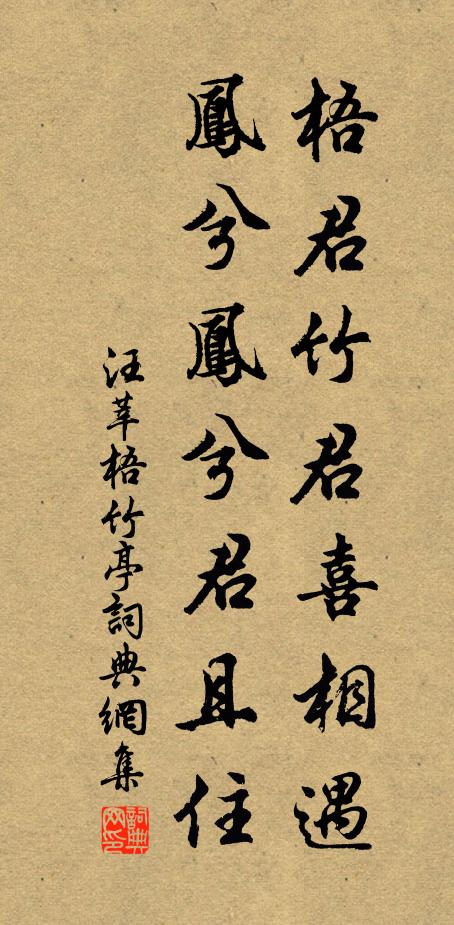 梧君竹君喜相遇
鳳兮鳳兮君且住
汪莘梧竹亭詞典網集
詞典網印